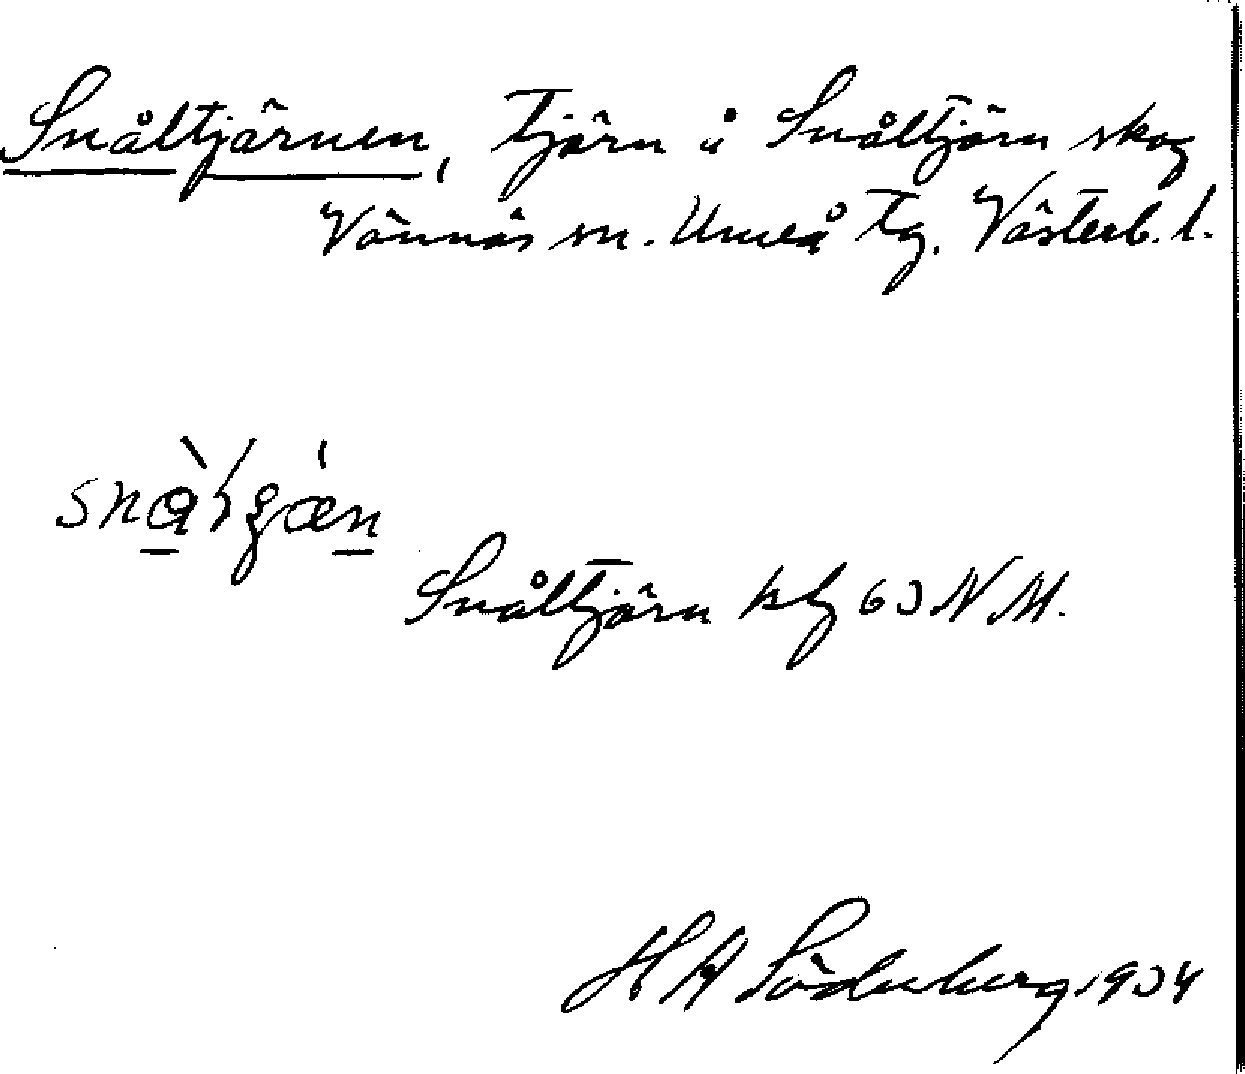 Snåltjärnen, Tjärn å Snåltjärn skog
Vännäs sn. Umeå tg. Västerb. l.
Snåltjärn kbl 63 NM.
H A Söderberg 1934